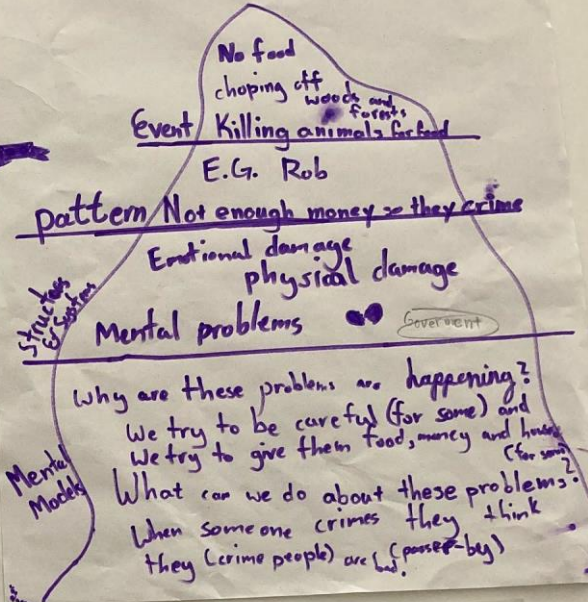 No food
choping off
woods and
forests
Event Killing animals for food
E.G. Rob
pattern Not enough money so they crime
Emotional damage
physical damage
Structures
& System
Mental problems Goverment
Why are these problems are happening?
We try to be careful (for some) and
We try to give them food, money and house
(for some)
Mental
Models
What can we do about these problems?
When someone crimes they think
they (crime people) are bad. (passer-by)